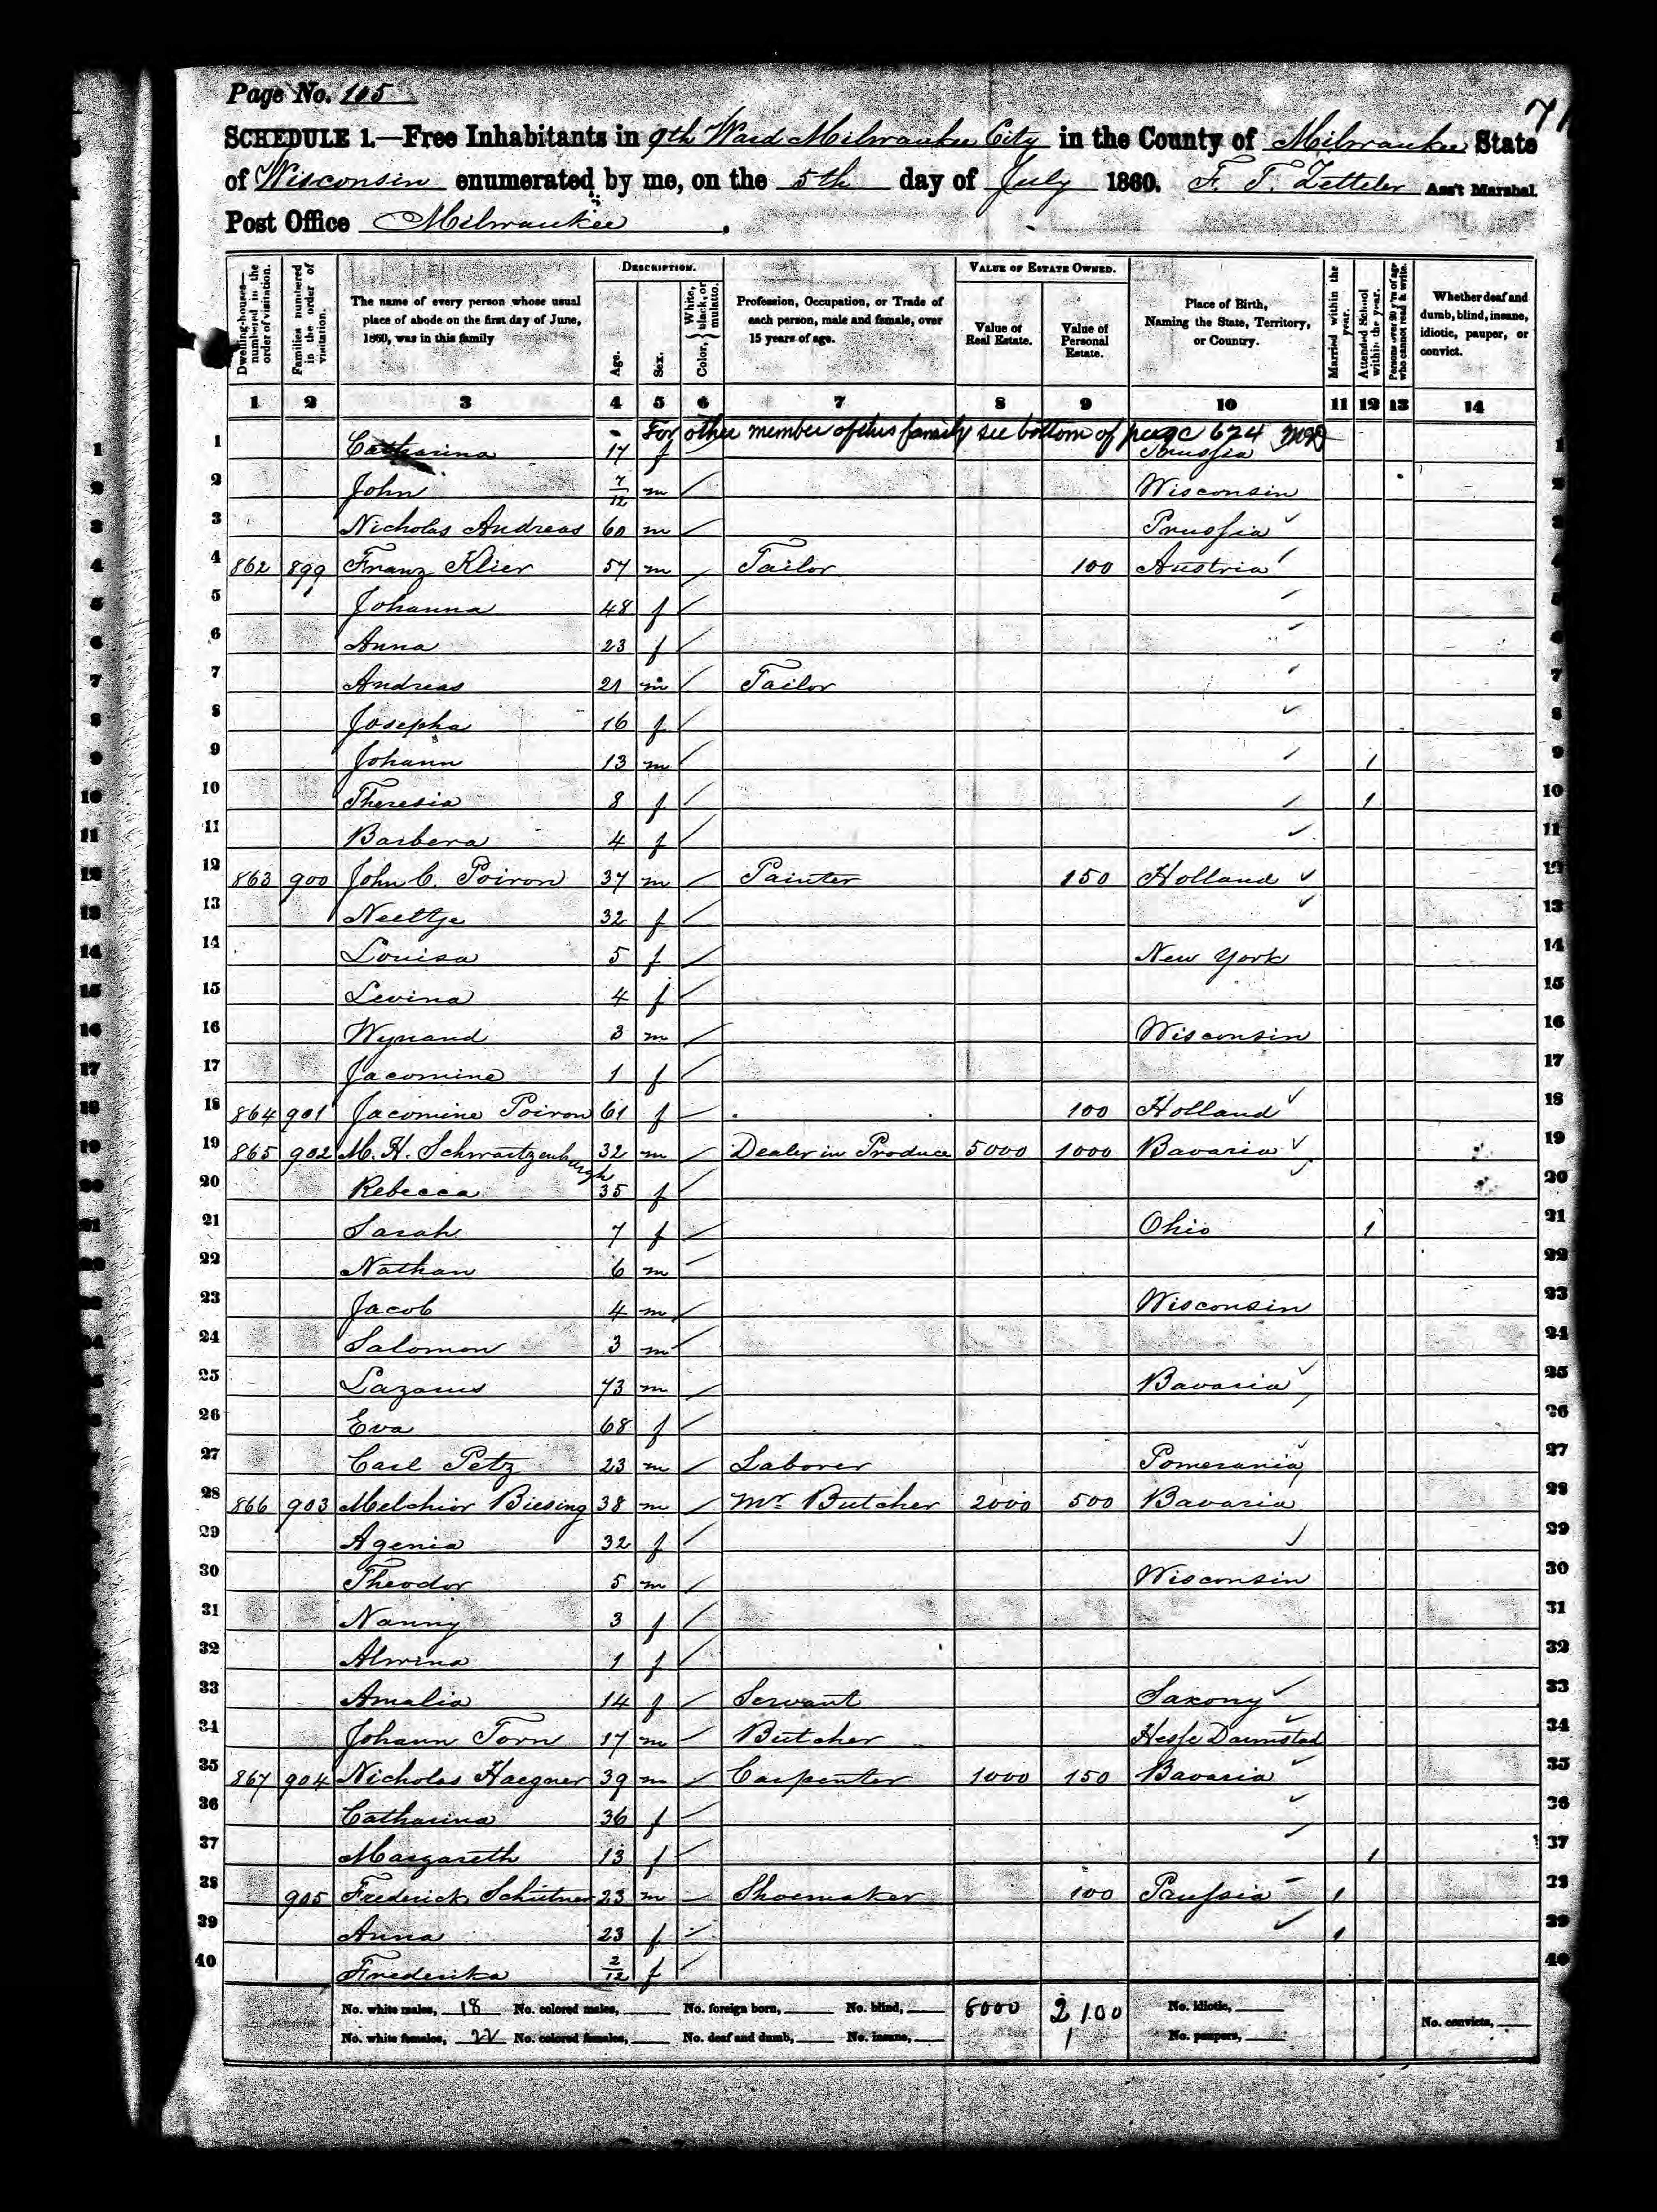 Page No. 105
71
SCHEDULE 1.—Free Inhabitants in 9th Ward Milwaukee City in the County of Milwaukee State
of Wisconsin enumerated by me, on the 5th day of July 1860. F. T. Zetteler Ass't Marshal.
Post Office Milwaukee.
Dwelling-houses—numbered in the order of visitation. Families numbered in the order of visitation. The name of every person whose usual place of abode on the first day of June, 1860, was in this family DESCRIPTION. Age. Sex. Color, White, black, or mulatto. Profession, Occupation, or Trade of each person, male and female, over 15 years of age. VALUE OF ESTATE OWNED. Value of Real Estate. Value of Personal Estate. Place of Birth, Naming the State, Territory, or Country. Married within the year. Attended School within the year. Persons over 20 y'rs of age who cannot read & write. Whether deaf and dumb, blind, insane, idiotic, pauper, or convict.
1 2 3 4 5 6 7 8 9 10 11 12 13 14
For other member of this family see bottom of page 674
1 Catharina 17 f Prussia 1
2 John 7/12 m Wisconsin 2
3 Nicholas Andreas 60 m Prussia 3
4 862 899 Franz Klier 57 m Tailor 100 Austria 4
5 Johanna 48 f 5
6 Anna 23 f 6
7 Andreas 21 m Tailor 7
8 Josepha 16 f 8
9 Johann 13 m 1 9
10 Theresia 8 f 1 10
11 Barbera 4 f 11
12 863 900 John C. Poiron 37 m Painter 150 Holland 12
13 Neeltje 32 f 13
14 Louisa 5 f New York 14
15 Levina 4 f 15
16 Wynand 3 m Wisconsin 16
17 Jacomine 1 f 17
18 864 901 Jacomine Poiron 61 f 100 Holland 18
19 865 902 M. H. Schwartzenburgh 32 m Dealer in Produce 5000 1000 Bavaria 19
20 Rebecca 35 f 20
21 Sarah 7 f Ohio 1 21
22 Nathan 6 m 22
23 Jacob 4 m Wisconsin 23
24 Salomon 3 m 24
25 Lazarus 73 m Bavaria 25
26 Eva 68 f 26
27 Carl Petz 23 m Laborer Pomerania 27
28 866 903 Melchior Biesing 38 m Mr. Butcher 2000 500 Bavaria 28
29 Agenia 32 f 29
30 Theodor 5 m Wisconsin 30
31 Nanny 3 f 31
32 Alwina 1 f 32
33 Amalia 14 f Servant Saxony 33
34 Johann Torn 17 m Butcher Hesse Darmstad 34
35 867 904 Nicholas Haegner 39 m Carpenter 1000 150 Bavaria 35
36 Catharina 36 f 36
37 Margareth 13 f 1 37
38 905 Frederick Schutner 23 m Shoemaker 100 Prussia 1 38
39 Anna 23 f 1 39
40 Frederika 2/12 f 40
No. white males, 18 No. colored males, No. foreign born, No. blind, 8000 2100 No. idiotic,
No. white females, 22 No. colored females, No. deaf and dumb, No. insane, No. paupers, No. convicts,